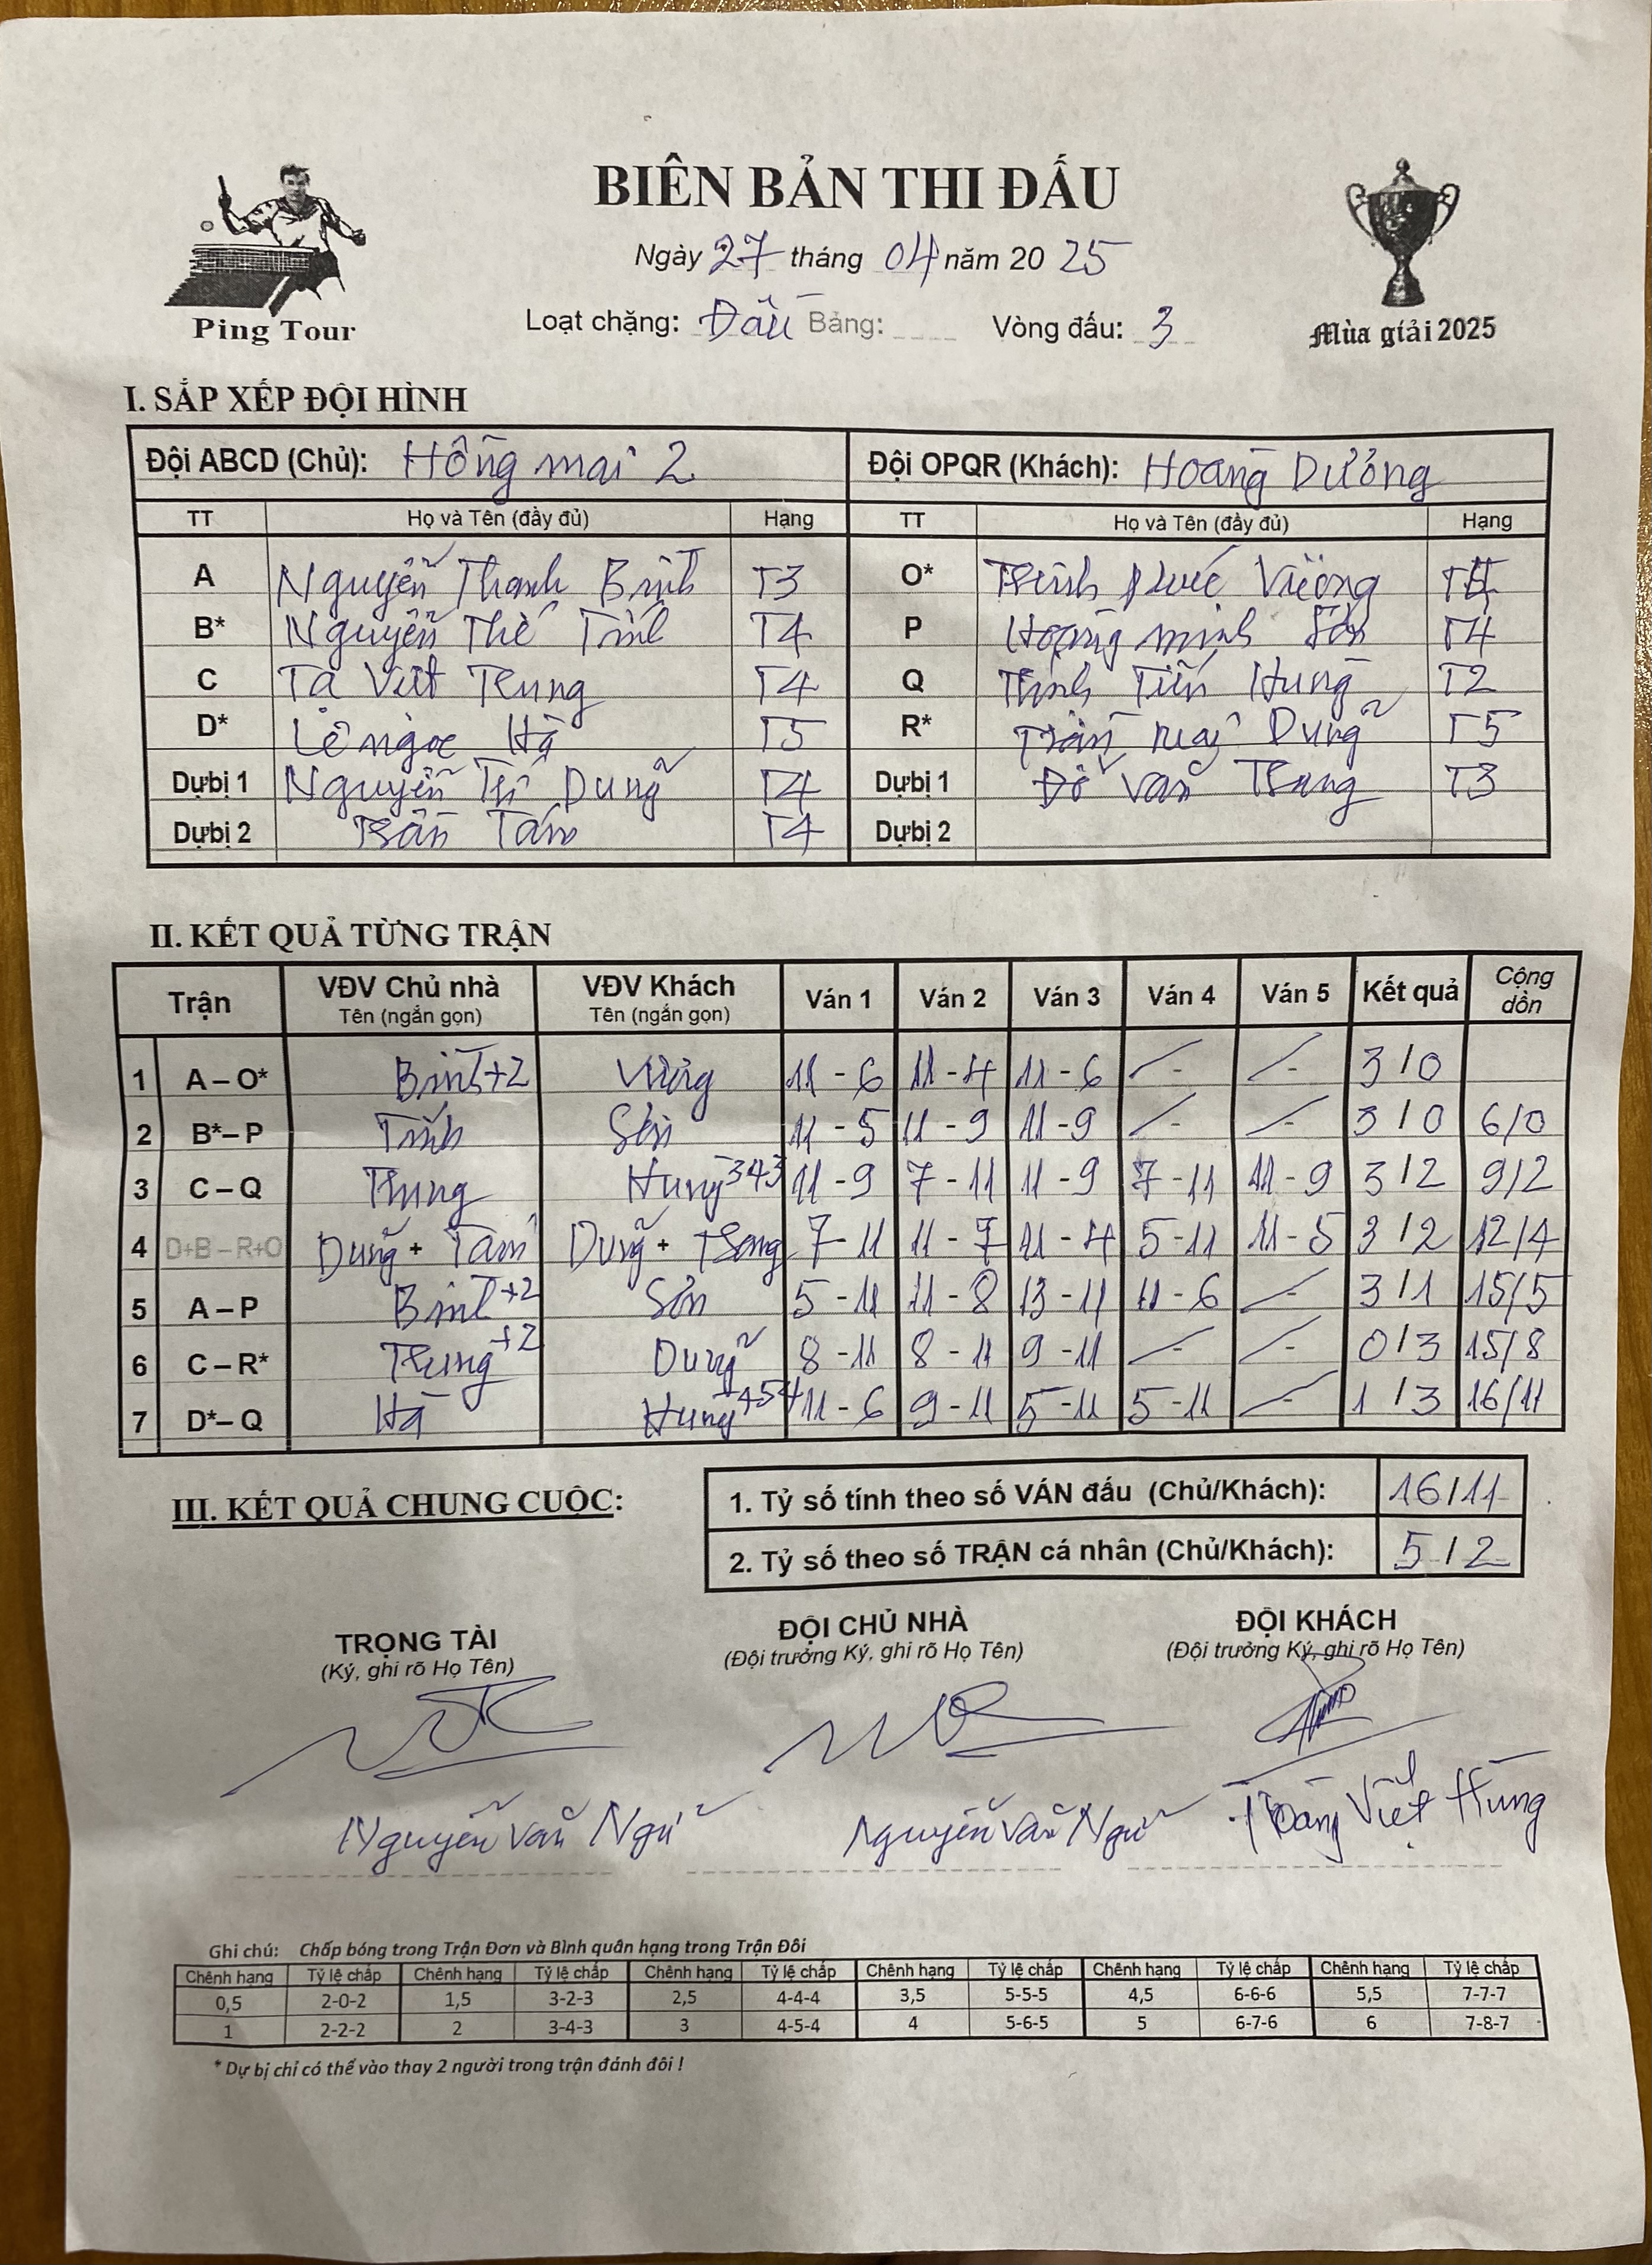 BIÊN BẢN THI ĐẤU
Ngày 27 tháng 04 năm 20 25
Ping Tour
Loạt chặng: Đấu Bảng: Vòng đấu: 3
Mùa giải 2025
I. SẮP XẾP ĐỘI HÌNH
Đội ABCD (Chủ): Hồng mai 2 Đội OPQR (Khách): Hoàng Dương
TT Họ và Tên (đầy đủ) Hạng TT Họ và Tên (đầy đủ) Hạng
A Nguyễn Thanh Bình T3 O* Vương
B* Nguyễn Thế Tính T4 P Hoàng minh Sơn T4
C Tạ Việt Trung T4 Q Tiến Hưng T2
D* Lê ngọc Hà T5 R* Trần Dũng T5
Dựbị 1 Nguyễn Trí Dũng T4 Dựbị 1 Đỗ Văn Trang T3
Dựbị 2 Trần Tám T4 Dựbị 2
II. KẾT QUẢ TỪNG TRẬN
Trận VĐV Chủ nhà VĐV Khách Ván 1 Ván 2 Ván 3 Ván 4 Ván 5 Kết quả Cộng dồn
Tên (ngắn gọn) Tên (ngắn gọn)
1 A – O* Bình+2 Vương 11 - 6 11 - 4 11 - 6 - - 3 / 0
2 B* – P Tính Sơn 11 - 5 11 - 9 11 - 9 - - 3 / 0 6/0
3 C – Q Trung Hưng 343 11 - 9 7 - 11 11 - 9 7 - 11 11 - 9 3 / 2 9/2
4 D+B – R+O Dũng + Tám Dũng + Trang 7 - 11 11 - 7 11 - 4 5 - 11 11 - 5 3 / 2 12/4
5 A – P Bình +2 Sơn 5 - 11 11 - 8 13 - 11 11 - 6 - 3 / 1 15/5
6 C – R* Trung +2 Dũng 8 - 11 8 - 11 9 - 11 - - 0 / 3 15/8
7 D* – Q Hà Hưng 454 11 - 6 9 - 11 5 - 11 5 - 11 - 1 / 3 16/11
III. KẾT QUẢ CHUNG CUỘC:
1. Tỷ số tính theo số VÁN đấu (Chủ/Khách): 16 / 11
2. Tỷ số theo số TRẬN cá nhân (Chủ/Khách): 5 / 2
TRỌNG TÀI ĐỘI CHỦ NHÀ ĐỘI KHÁCH
(Ký, ghi rõ Họ Tên) (Đội trưởng Ký, ghi rõ Họ Tên) (Đội trưởng Ký, ghi rõ Họ Tên)
Nguyễn Văn Ngữ Nguyễn Văn Ngữ Hoàng Việt Hùng
Ghi chú: Chấp bóng trong Trận Đơn và Bình quân hạng trong Trận Đôi
Chênh hạng Tỷ lệ chấp Chênh hạng Tỷ lệ chấp Chênh hạng Tỷ lệ chấp Chênh hạng Tỷ lệ chấp Chênh hạng Tỷ lệ chấp Chênh hạng Tỷ lệ chấp
0,5 2-0-2 1,5 3-2-3 2,5 4-4-4 3,5 5-5-5 4,5 6-6-6 5,5 7-7-7
1 2-2-2 2 3-4-3 3 4-5-4 4 5-6-5 5 6-7-6 6 7-8-7
* Dự bị chỉ có thể vào thay 2 người trong trận đánh đôi !